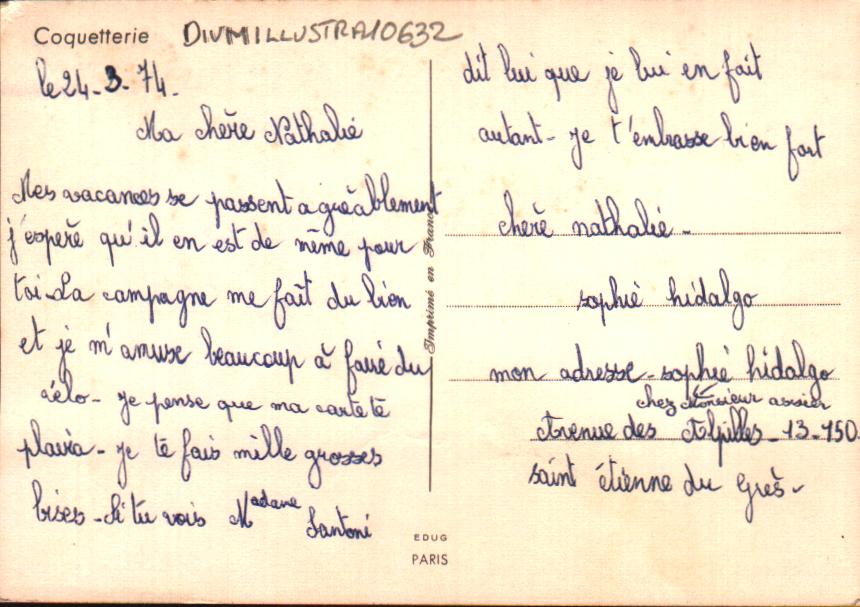 Coquetterie DIVMILLUSTRA10632
le 24-3-74.
Ma chère Nathalie
Mes vacances se passent agréablement
j'espère qu'il en est de même pour
toi-La campagne me fait du bien
et je m'amuse beaucoup à faire du
vélo- je pense que ma carte te
plaira- je te fais mille grosses
bises-Si tu vois Madame Santoni
dit lui que je lui en fait
autant- je t'embrasse bien fort
chère nathalie-
sophie hidalgo
mon adresse-sophie hidalgo
chez Monsieur
Avenue des Alpilles-13-150.
saint étienne du Grès-
Imprimé en France
EDUG
PARIS